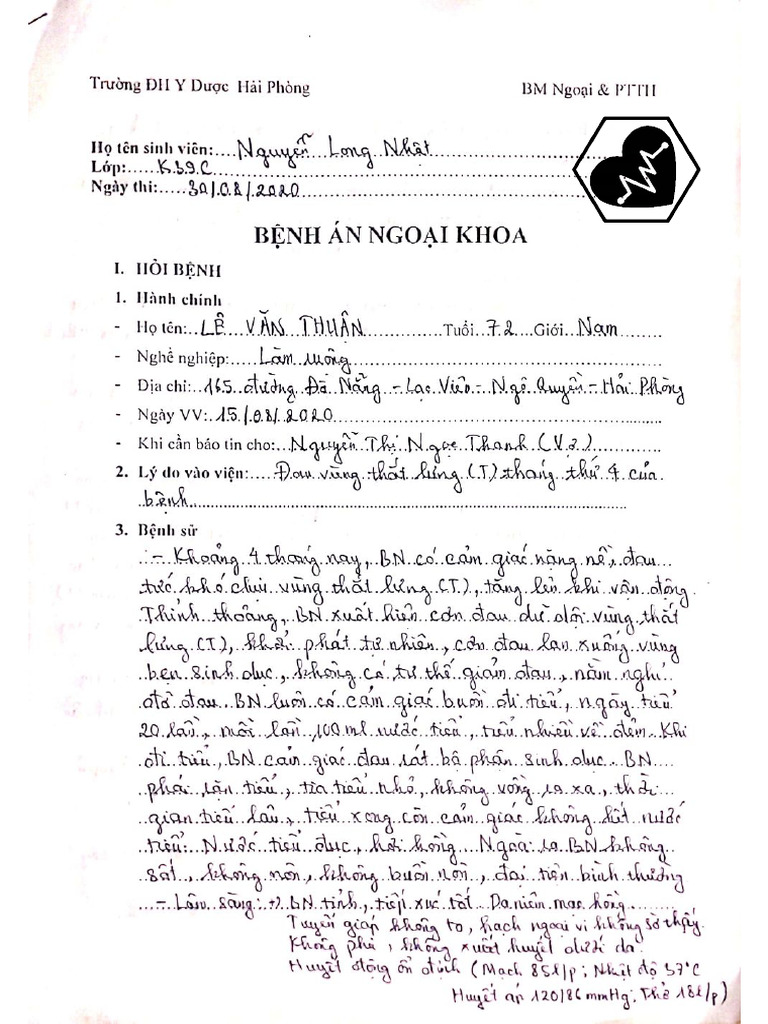 Trường ĐH Y Dược Hải Phòng
BM Ngoại & PTTH
Họ tên sinh viên:....Nguyễn Long Nhật
Lớp:......K39C
Ngày thi:.....30/08/2020
BỆNH ÁN NGOẠI KHOA
I. HỎI BỆNH
1. Hành chính
- Họ tên: LÊ VĂN THUẬN Tuổi 72 Giới Nam
- Nghề nghiệp: Làm ruộng
- Địa chỉ: 165 đường Đà Nẵng - Lạc Viên - Ngô Quyền - Hải Phòng
- Ngày VV: 15/08/2020
- Khi cần báo tin cho: Nguyễn Thị Ngọc Thanh (Vợ)
2. Lý do vào viện: Đau vùng thắt lưng (T) tháng thứ 4 của
bệnh
3. Bệnh sử
- Khoảng 4 tháng nay, BN có cảm giác nặng nề, đau
tức khó chịu vùng thắt lưng (T), tăng lên khi vận động.
Thỉnh thoảng, BN xuất hiện cơn đau dữ dội vùng thắt
lưng (T), khởi phát tự nhiên, cơn đau lan xuống vùng
bẹn sinh dục, không có tư thế giảm đau, nằm nghỉ
đỡ đau. BN luôn có cảm giác buồn đi tiểu, ngày tiểu
20 lần, mỗi lần 100 ml nước tiểu, tiểu nhiều về đêm. Khi
đi tiểu, BN cảm giác đau rát bộ phận sinh dục. BN
phải rặn tiểu, tia tiểu nhỏ, không vồng ra xa, thời
gian tiểu lâu, tiểu xong còn cảm giác không hết nước
tiểu. Nước tiểu đục, hơi hồng. Ngoài ra BN không
sốt, không nôn, không buồn nôn, đại tiện bình thường
- Lâm sàng: +) BN tỉnh, tiếp xúc tốt. Da niêm mạc hồng
Tuyến giáp không to, hạch ngoại vi không sờ thấy.
Không phù, không xuất huyết dưới da.
Huyết động ổn định (Mạch 85l/p; Nhiệt độ 37°C
Huyết áp 120/86 mmHg; Thở 18l/p)